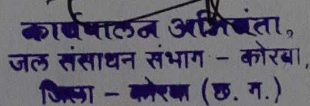 कार्यपालन अभियंता,
जल संसाधन संभाग - कोरबा,
जिला - कोरबा (छ. ग.)